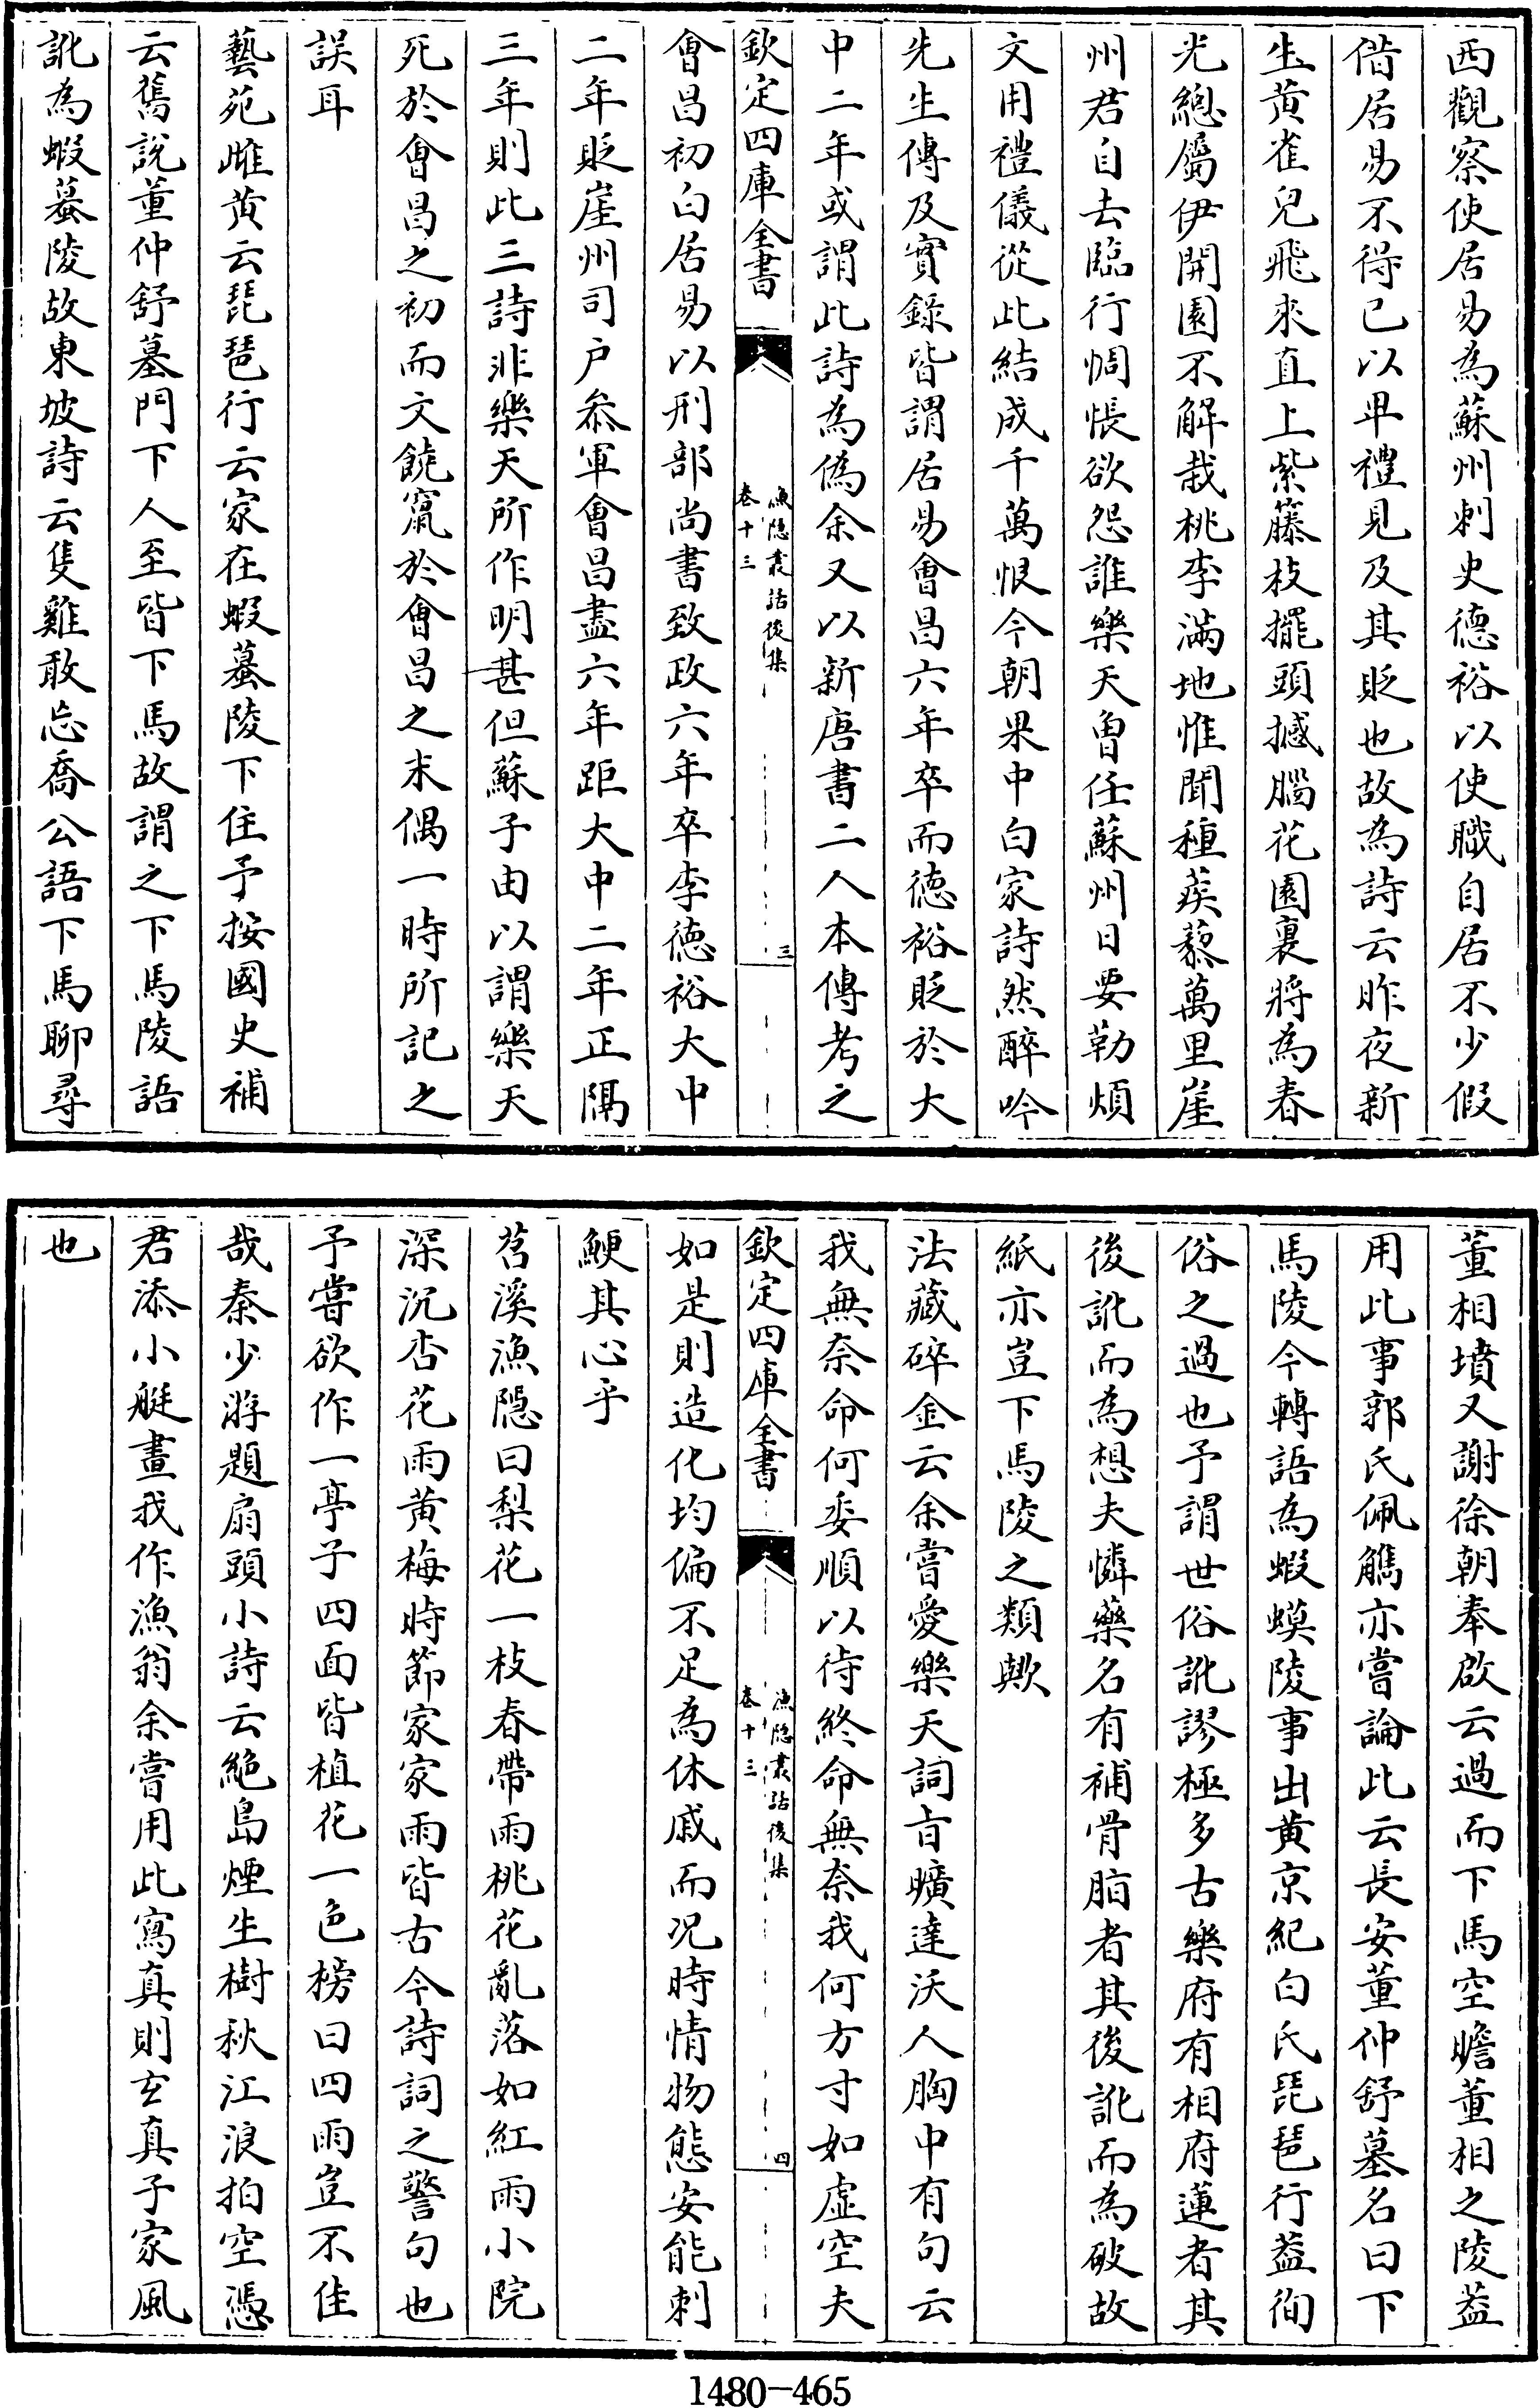 西觀察使居易為蘇州刺史德裕以使職自居不少假
借居易不得已以卑禮見及其貶也故為詩云昨夜新
生黄雀兒飛來直上紫籐枝擺頭撼腦花園裏將為春
光總屬伊開園不解栽桃李滿地惟聞種蒺藜萬里崖
州君自去臨行惆悵欲怨誰樂天曾任蘇州日要勒煩
文用禮儀從此結成千萬恨今朝果中白家詩然醉吟
先生傳及實錄皆謂居易會昌六年卒而德裕貶於大
中二年或謂此詩為偽余又以新唐書二人本傳考之
欽定四庫全書
漁隱叢話後集
卷十三
三
會昌初白居易以刑部尚書致政六年卒李德裕大中
二年貶崖州司户叅軍會昌盡六年距大中二年正隔
三年則此三詩非樂天所作明甚但蘇子由以謂樂天
死於會昌之初而文饒竄於會昌之末偶一時所記之
誤耳
藝苑雌黄云琵琶行云家在蝦蟇陵下住予按國史補
云舊說董仲舒墓門下人至皆下馬故謂之下馬陵語
訛為蝦蟇陵故東坡詩云隻雞敢忘喬公語下馬聊尋
董相墳又謝徐朝奉啟云過而下馬空瞻董相之陵葢
用此事郭氏佩觿亦嘗論此云長安董仲舒墓名曰下
馬陵今轉語為蝦蟆陵事出黄京紀白氏琵琶行葢徇
俗之過也予謂世俗訛謬極多古樂府有相府蓮者其
後訛而為想夫憐藥名有補骨脂者其後訛而為破故
紙亦豈下馬陵之類歟
法藏碎金云余嘗愛樂天詞旨曠達沃人胸中有句云
我無奈命何委順以待終命無奈我何方寸如虛空夫
欽定四庫全書
漁隱叢話後集
卷十三
四
如是則造化均偏不足為休戚而况時情物態安能刺
鯁其心乎
苕溪漁隱曰梨花一枝春帶雨桃花亂落如紅雨小院
深沉杏花雨黄梅時節家家雨皆古今詩詞之警句也
予嘗欲作一亭子四面皆植花一色榜曰四雨豈不佳
哉秦少游題扇頭小詩云絶島煙生樹秋江浪拍空憑
君添小艇畫我作漁翁余嘗用此寫真則玄真子家風
也
1480-465